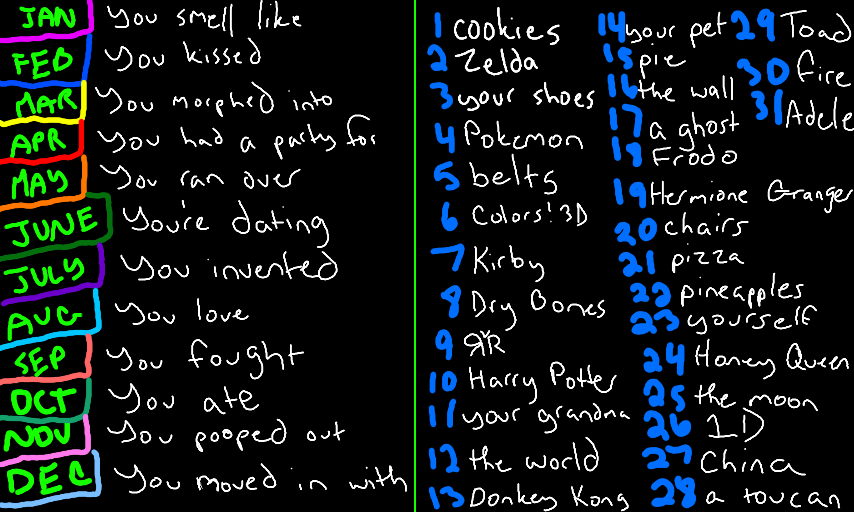 JAN You smell like
FEB You kissed
MAR You morphed into
APR You had a party for
MAY You ran over
JUNE You're dating
JULY You invented
AUG You love
SEP You fought
OCT You ate
NOV You pooped out
DEC You moved in with
1 cookies
2 Zelda
3 your shoes
4 Pokemon
5 belts
6 Colors! 3D
7 Kirby
8 Dry Bones
9
10 Harry Potter
11 your grandma
12 the world
13 Donkey Kong
14 your pet
15 pie
16 the wall
17 a ghost
18 Frodo
19 Hermione Granger
20 chairs
21 pizza
22 pineapples
23 yourself
24 Honey Queen
25 the moon
26 1D
27 China
28 a toucan
29 Toad
30 Fire
31 Adele